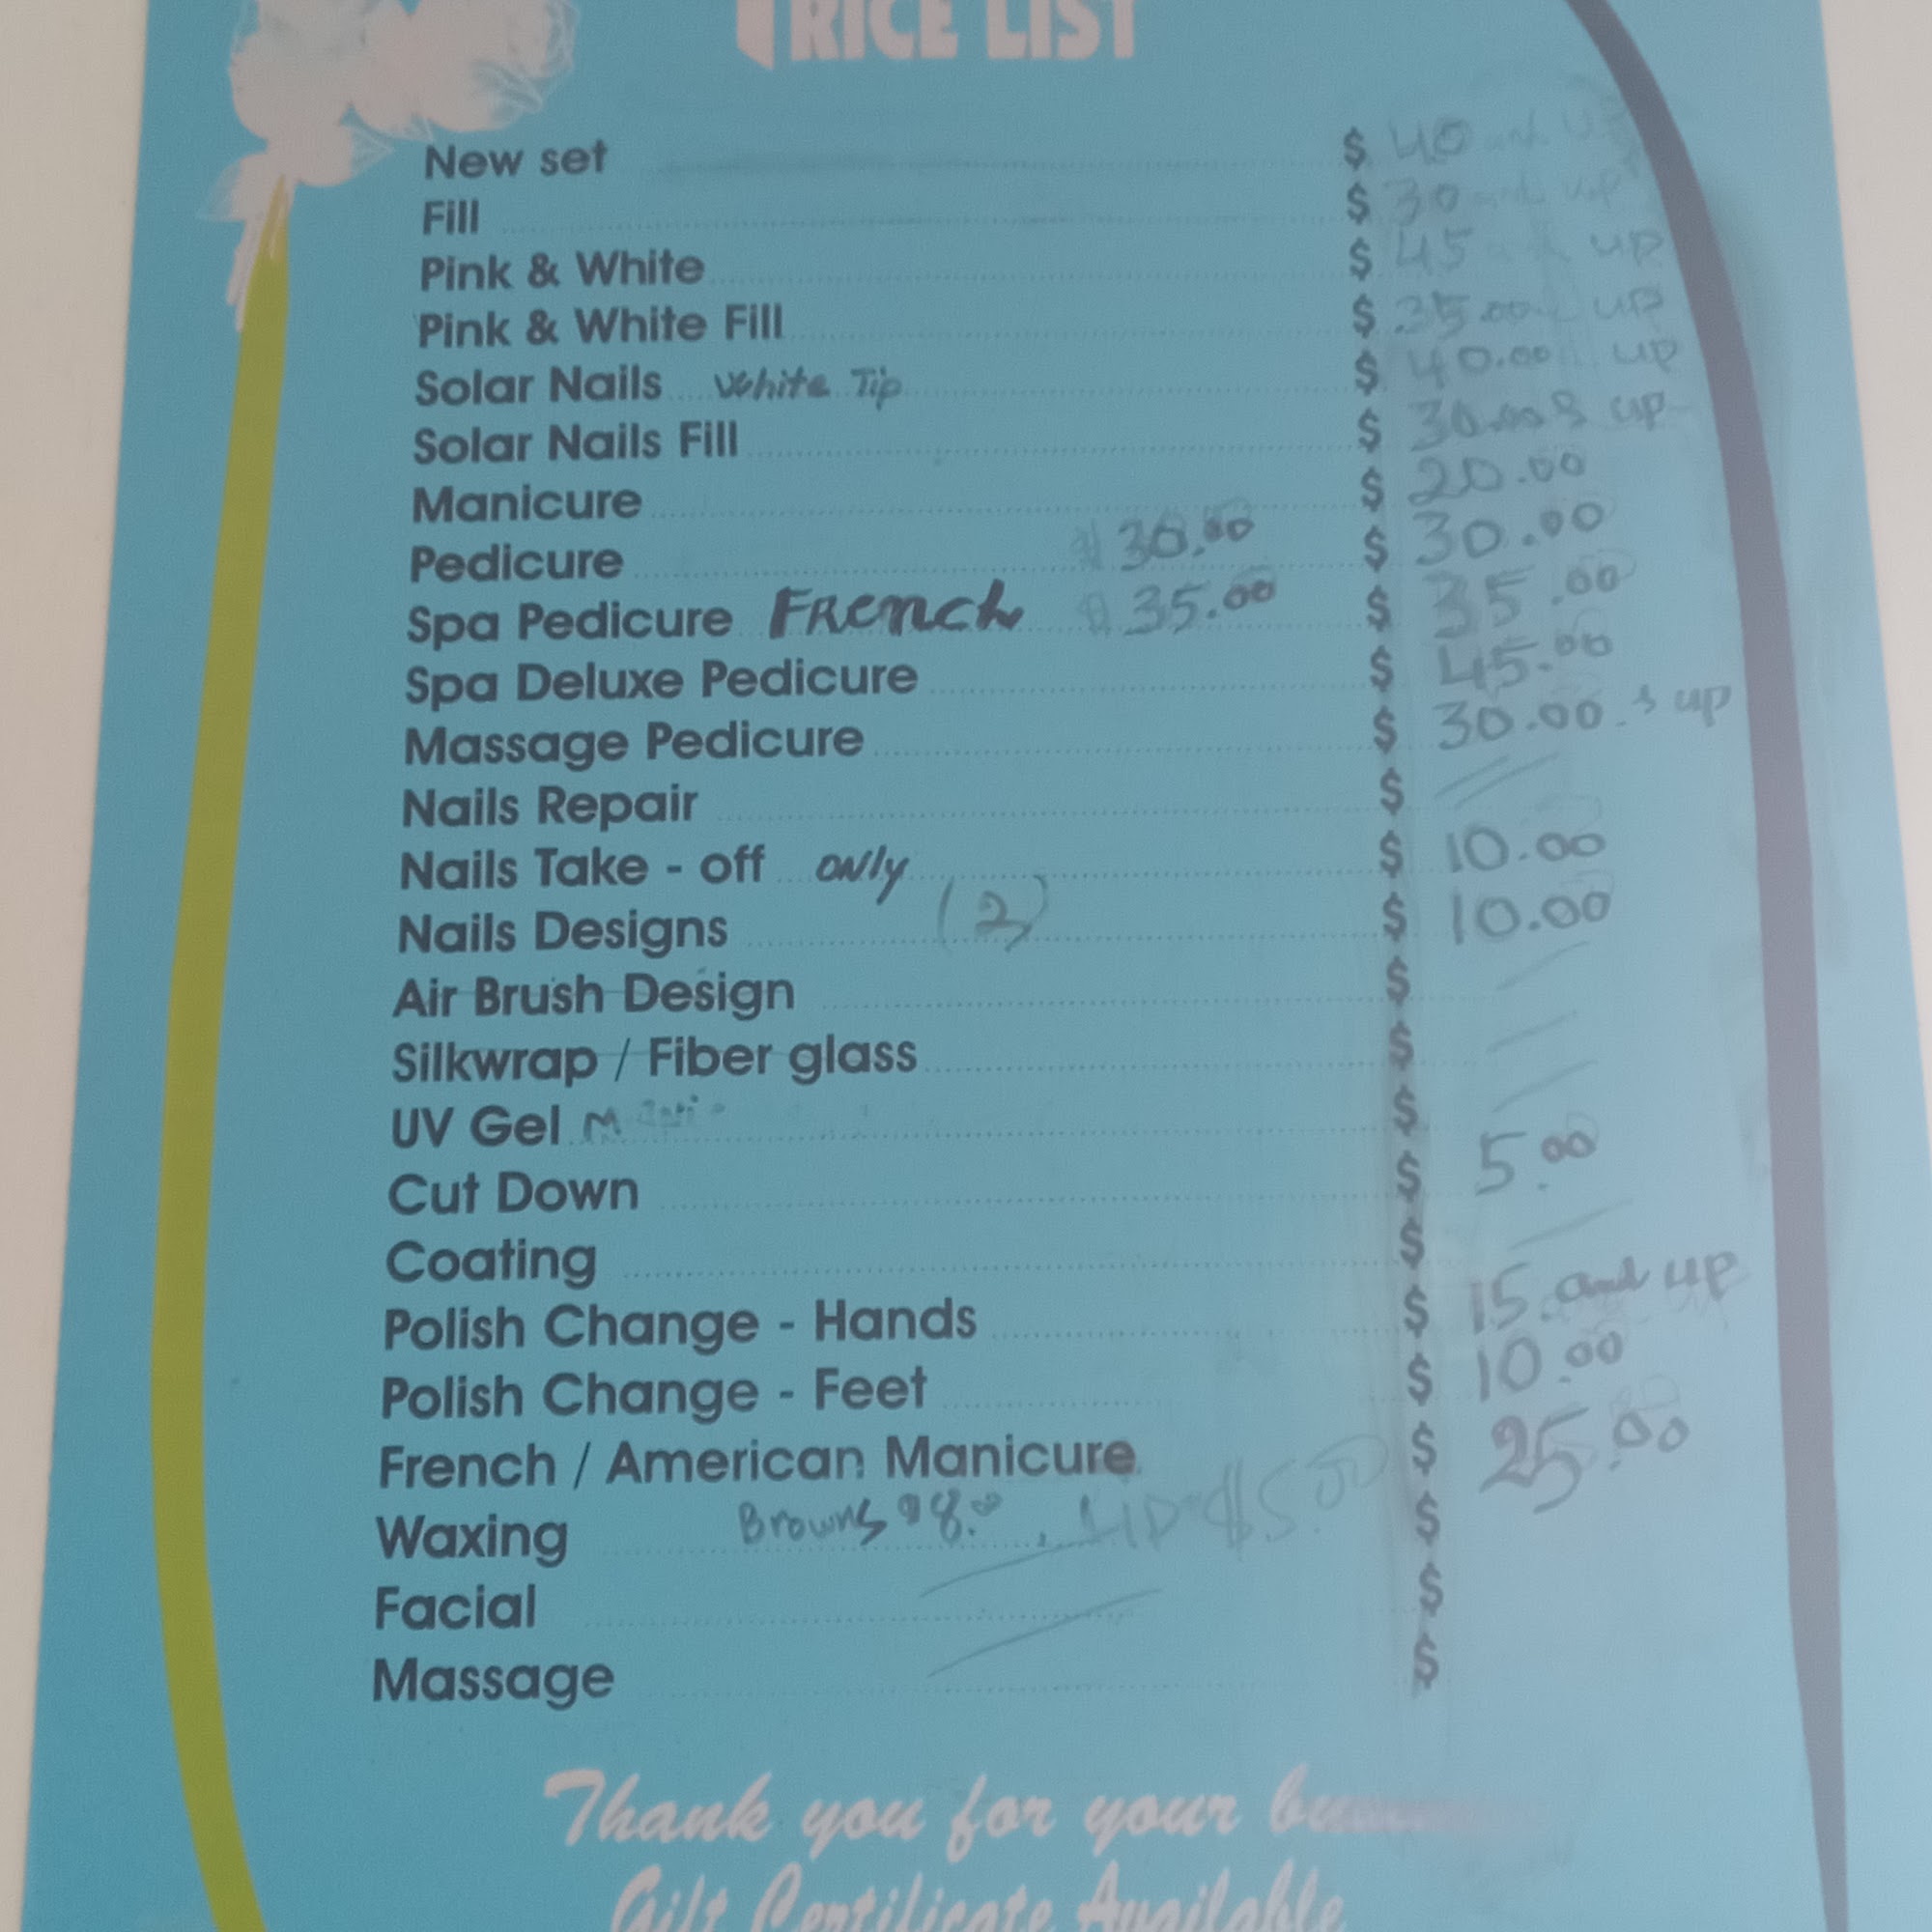 PRICE LIST
New set $ 40 and up
Fill $ 30 and up
Pink & White $ 45 up
Pink & White Fill $ 35.00 up
Solar Nails White Tip $ 40.00 up
Solar Nails Fill $ 30.00 & up
Manicure $ 20.00
Pedicure $30.00 $ 30.00
Spa Pedicure French $35.00 $ 35.00
Spa Deluxe Pedicure $ 45.00
Massage Pedicure $ 30.00 & up
Nails Repair $
Nails Take - off only $ 10.00
Nails Designs (2) $ 10.00
Air Brush Design $
Silkwrap / Fiber glass $
UV Gel $
Cut Down $ 5.00
Coating $
Polish Change - Hands $ 15. and up
Polish Change - Feet $ 10.00
French / American Manicure $ 25.00
Waxing Brows $8.00, Lip $5.00 $
Facial $
Massage $
Thank you for your
Gift Certificate Available